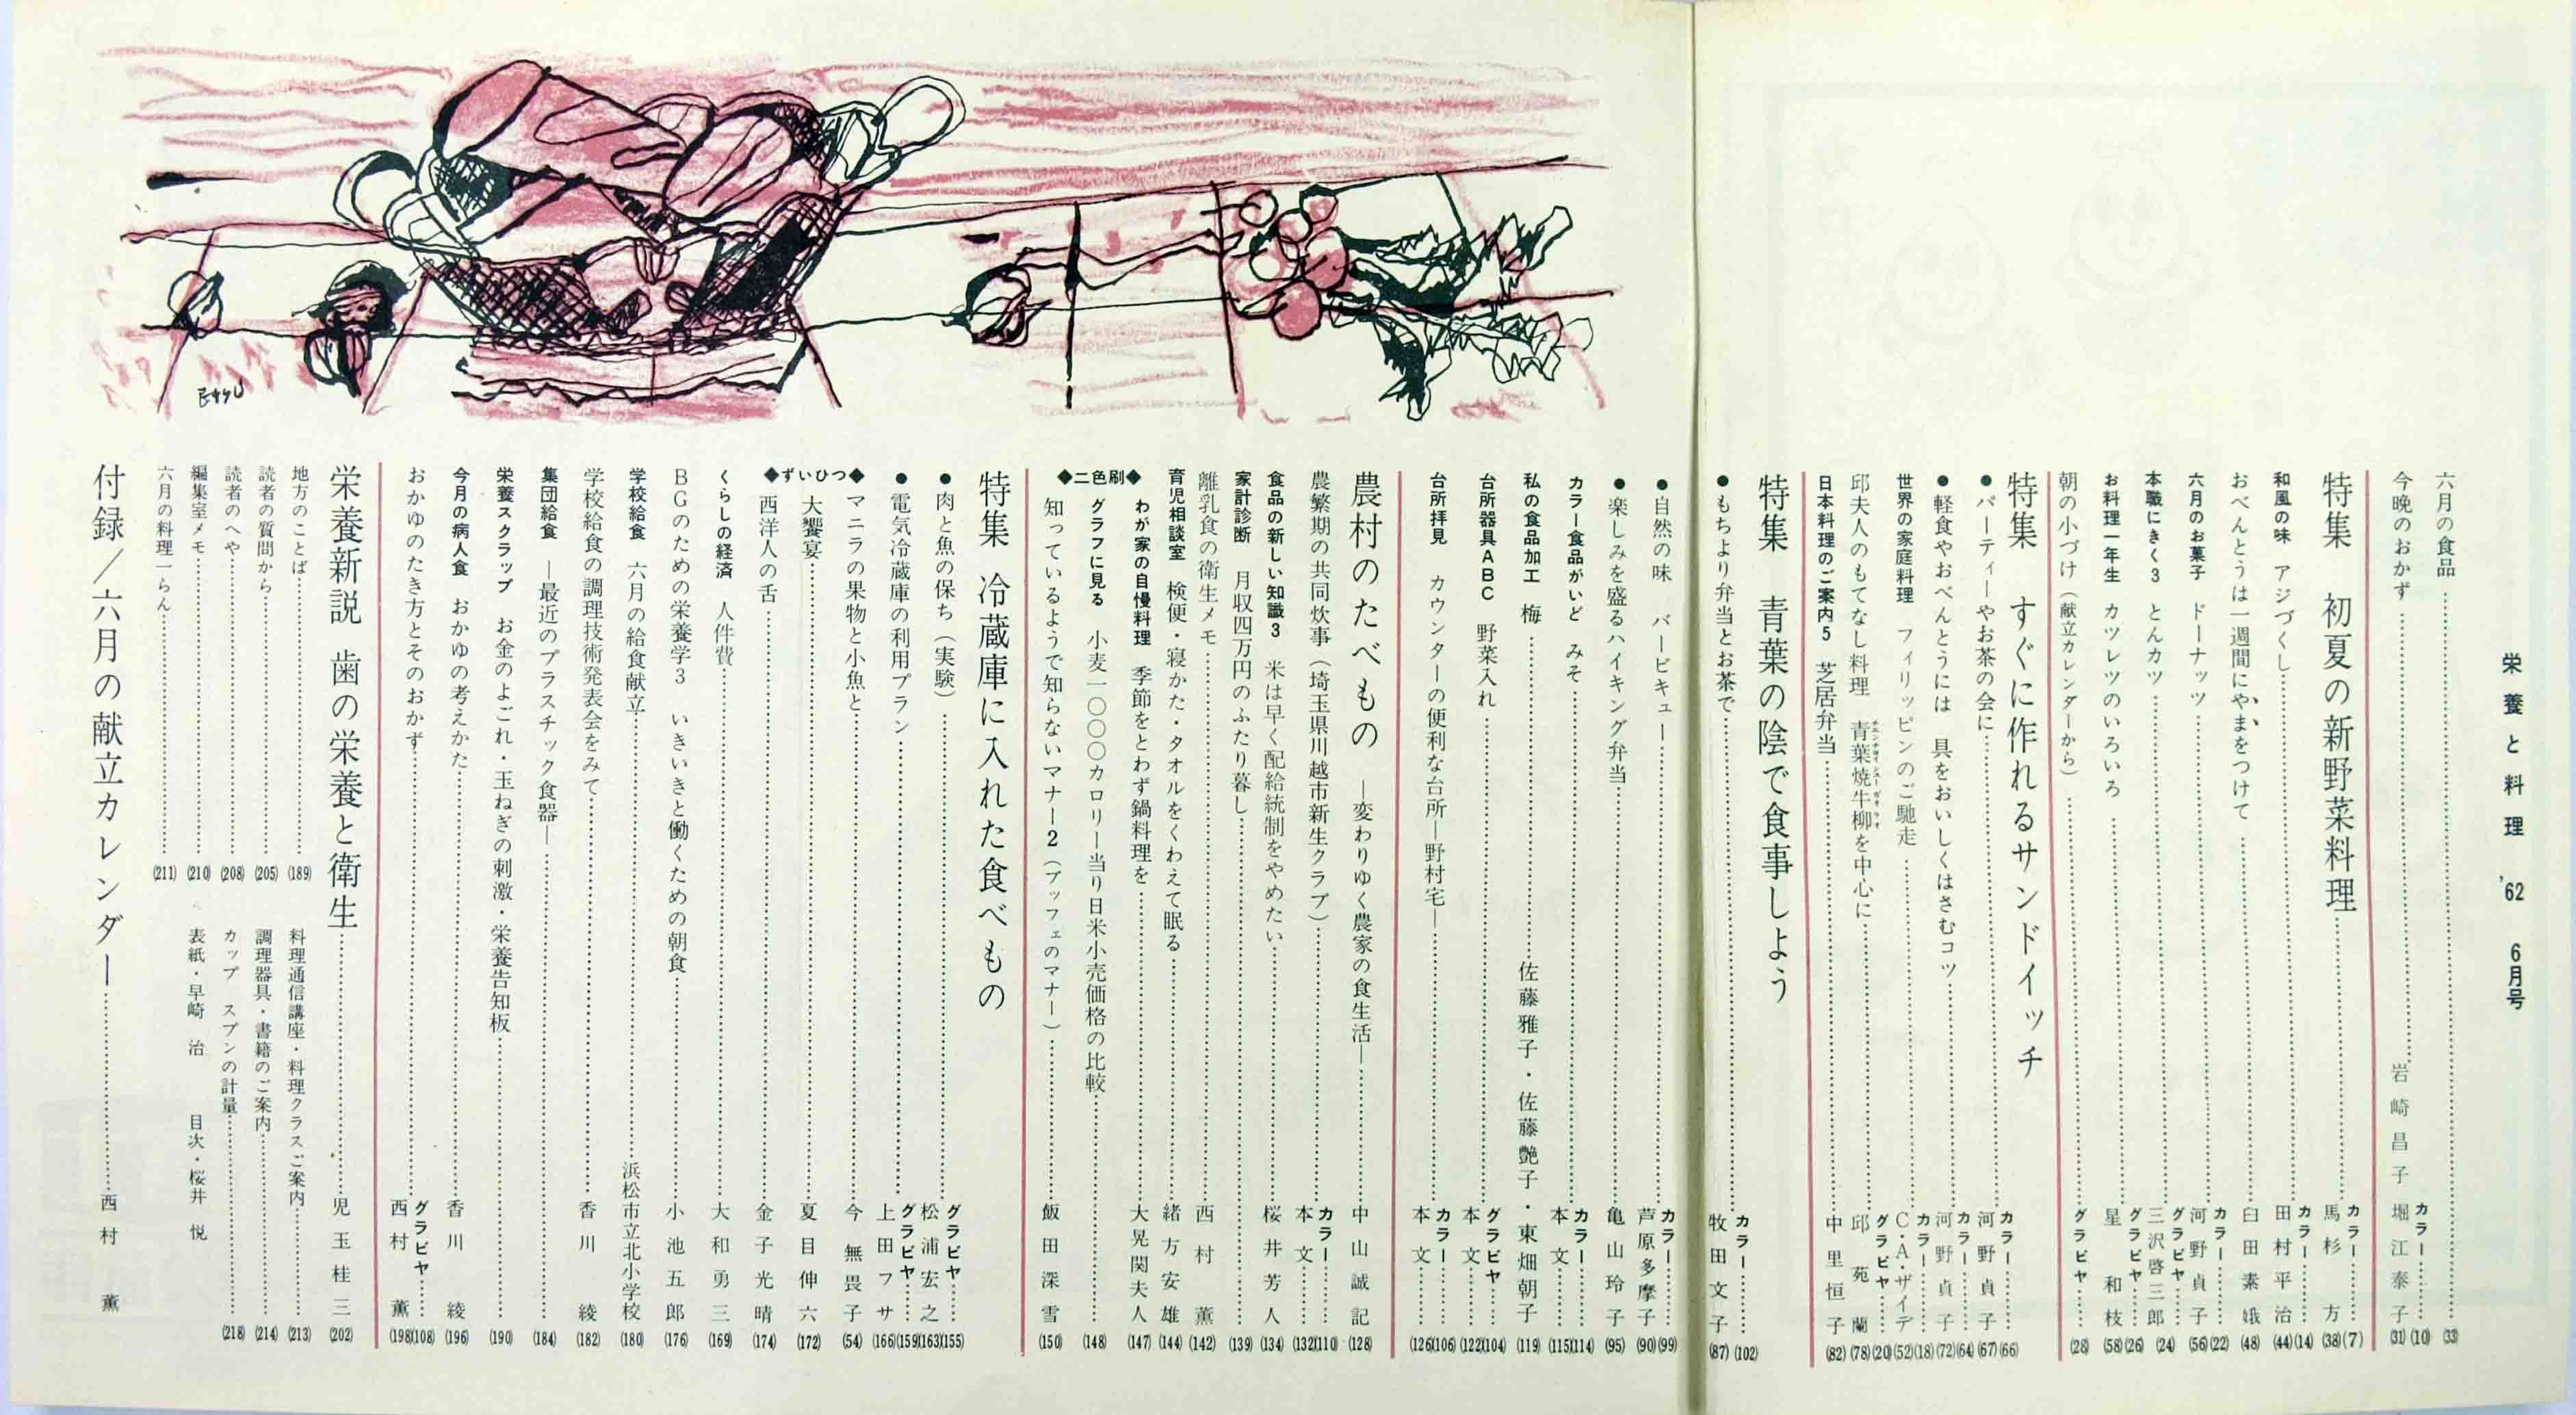 栄養と料理 '62 6月号
六月の食品 (33)
今晩のおかず 岩崎昌子 カラー 堀江泰子 (31)(10)
特集 初夏の新野菜料理 カラー 馬杉方 (38)(7)
和風の味 アジづくし カラー 田村平治 (44)(14)
おべんとうは一週間にやまをつけて 臼田素娥 (48)
六月のお菓子 ドーナッツ カラー 河野貞子 (56)(22)
本職にきく3 とんカツ グラビヤ 三沢啓三郎 (24)
お料理一年生 カツレツのいろいろ グラビヤ 星和枝 (58)(26)
朝の小づけ(献立カレンダーから) グラビヤ (28)
特集 すぐに作れるサンドイッチ
●パーティーやお茶の会に カラー 河野貞子 (67)(66)
●軽食やおべんとうには 具をおいしくはさむコツ カラー 河野貞子 (72)(64)
世界の家庭料理 フィリッピンのご馳走 カラー C・A・ザイデ (52)(18)
邱夫人のもてなし料理 青葉焼牛柳を中心に グラビヤ 邱苑蘭 (78)(20)
日本料理のご案内5 芝居弁当 中里恒子 (82)
特集 青葉の陰で食事しよう
●もちより弁当とお茶で カラー 牧田文子 (87)(102)
●自然の味 バービキュー カラー 芦原多摩子 (90)(99)
●楽しみを盛るハイキング弁当 亀山玲子 (95)
カラー食品がいど みそ カラー 本文 (115)(114)
私の食品加工 梅 佐藤雅子・佐藤艶子・東畑朝子 (119)
台所器具ABC 野菜入れ グラビヤ 本文 (122)(104)
台所拝見 カウンターの便利な台所―野村宅― カラー 本文 (126)(106)
農村のたべもの ―変わりゆく農家の食生活― 中山誠記 (128)
農繁期の共同炊事(埼玉県川越市新生クラブ) カラー 本文 (132)(110)
食品の新しい知識3 米は早く配給統制をやめたい 桜井芳人 (134)
家計診断 月収四万円のふたり暮し (139)
離乳食の衛生メモ 西村薫 (142)
育児相談室 検便・寝かた・タオルをくわえて眠る 緒方安雄 (144)
わが家の自慢料理 季節をとわず鍋料理を 大晃関夫人 (147)
◆二色刷◆ グラフに見る 小麦一〇〇〇カロリー当り日米小売価格の比較 (148)
知っているようで知らないマナー2(ブッフェのマナー) 飯田深雪 (150)
特集 冷蔵庫に入れた食べもの
●肉と魚の保ち(実験) グラビヤ 松浦宏之 (163)(155)
●電気冷蔵庫の利用プラン グラビヤ 上田フサ (166)(159)
◆ずいひつ◆ マニラの果物と小魚と 今無畏子 (54)
大饗宴 夏目伸六 (172)
西洋人の舌 金子光晴 (174)
くらしの経済 人件費 大和勇三 (169)
BGのための栄養学3 いきいきと働くための朝食 小池五郎 (176)
学校給食 六月の給食献立 浜松市立北小学校 (180)
学校給食の調理技術発表会をみて 香川綾 (182)
集団給食 ―最近のプラスチック食器― (184)
栄養スクラップ お金のよごれ・玉ねぎの刺激・栄養告知板 (190)
今月の病人食 おかゆの考えかた 香川綾 (196)
おかゆのたき方とそのおかず グラビヤ 西村薫 (198)(108)
栄養新説 歯の栄養と衛生 児玉桂三 (202)
地方のことば (189)
読者の質問から (205)
読者のへや (208)
編集室メモ (210)
六月の料理一らん (211)
料理通信講座・料理クラスご案内 (213)
調理器具・書籍のご案内 (214)
カップ スプンの計量 (218)
表紙・早崎治 目次・桜井悦
付録/六月の献立カレンダー 西村薫